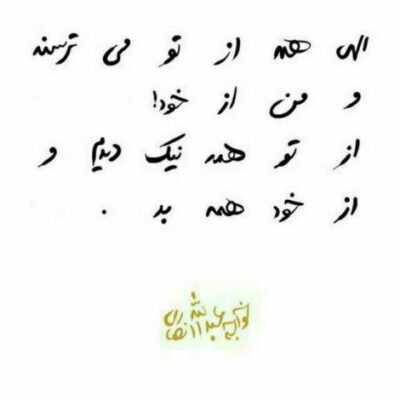 الهی همه از تو می ترسند
و من از خود!
از تو همه نیک دیدم و
از خود همه بد .
خواجه عبدالله انصاری